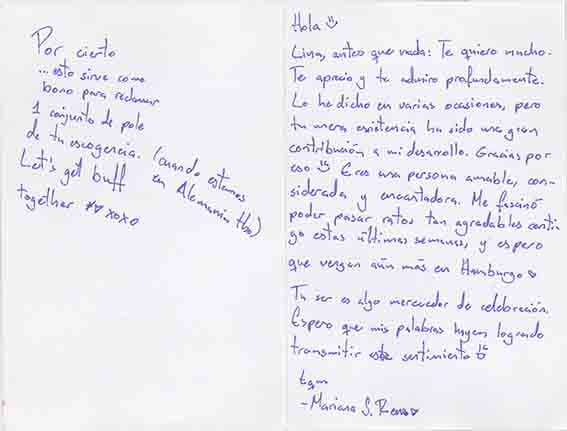 Por cierto
...esto sirve como
bono para reclamar
1 conjunto de pole
de tu escogencia. (cuando estemos
en Alemania tho)
Let's get buff
together ♥ xoxo
Hola :)
Lina, antes que nada: Te quiero mucho.
Te aprecio y te admiro profundamente.
Lo he dicho en varias ocasiones, pero
tu mera existencia ha sido una gran
contribución a mi desarrollo. Gracias por
eso :) Eres una persona amable, con-
siderada y encantadora. Me fascinó
poder pasar ratos tan agradables conti
go estas últimas semanas, y espero
que vengan aún más en Hamburgo ♥
Tu ser es algo merecedor de celebración.
Espero que mis palabras hayan logrado
transmitir este sentimiento
tqm
- Mariana S. ♥